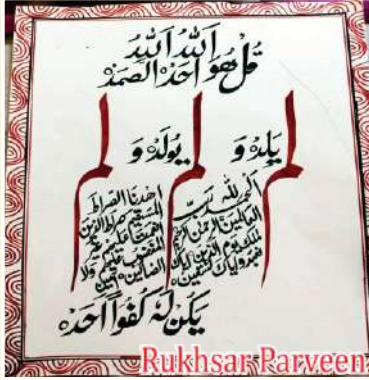 قُلْ هُوَ اللّٰهُ اللّٰهُ
اَحَدٌ الصَّمَدُ
لَمْ يَلِدْ وَ لَمْ يُولَدْ وَ لَمْ
الحمد للہ رب
العالمین الرحمن الرحیم
ملک یوم الدین ایاک
نعبد و ایاک نستعین
اهدنا الصراط
المستقیم صراط الذین
انعمت علیهم غیر
المغضوب علیهم ولا
الضالین آمین
یَكُنْ لَّهٗ كُفُوًا اَحَدٌ
Rukhsar Parveen